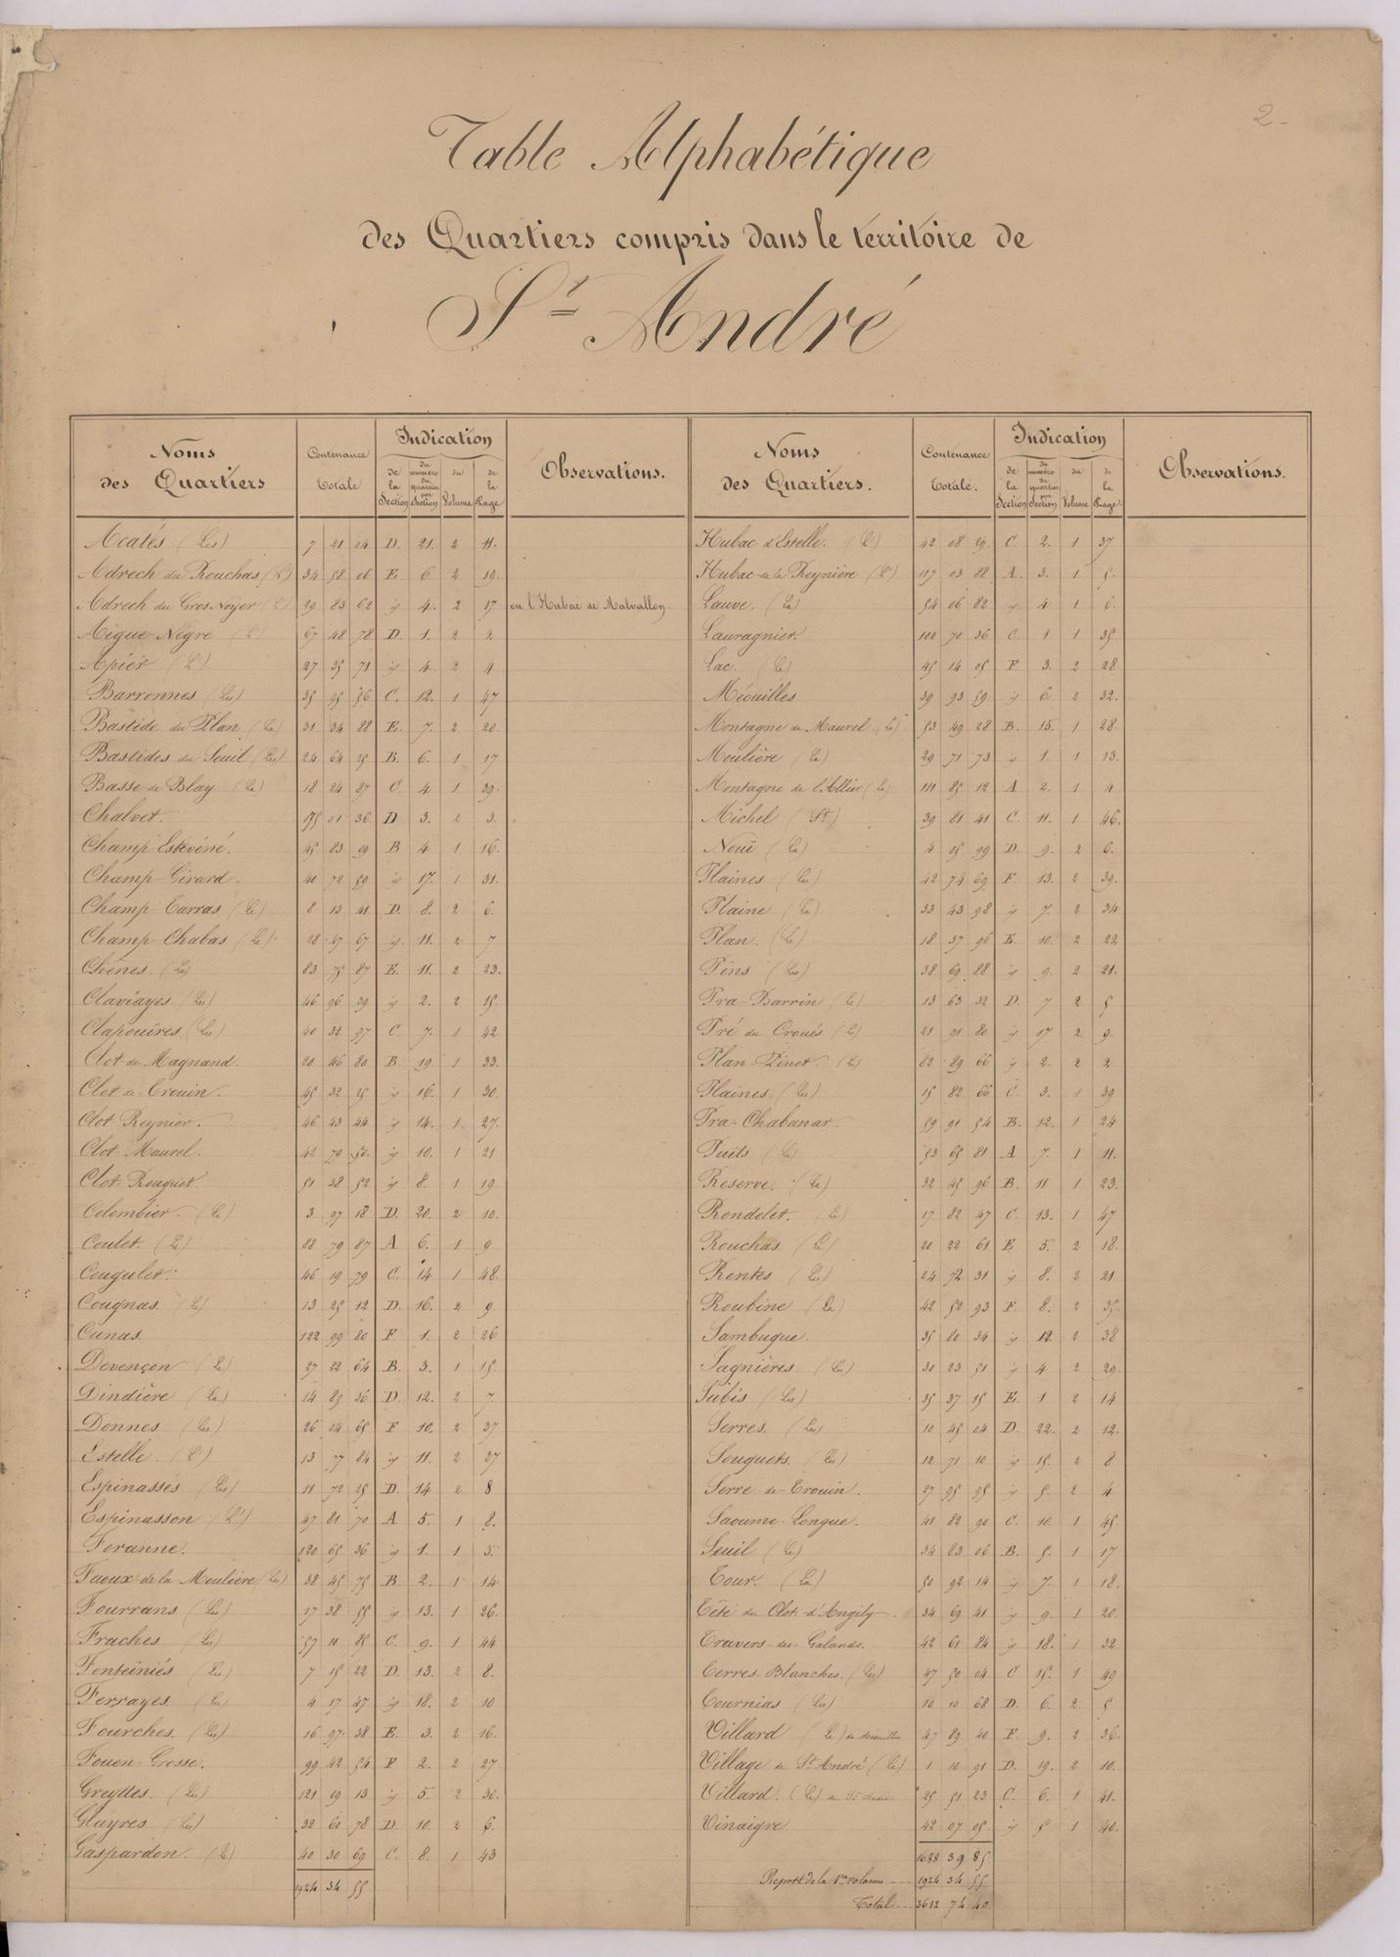 2.
Table Alphabétique
des Quartiers compris dans le territoire de
St André
Noms des Quartiers | Contenance Totale | Indication de la Section | du numéro du quartier par Section | du Volume | de la Page | Observations.
Acatés (Les) | 7 21 14 | D. | 21. | 2 | 11.
Adrech du Rouchas (L') | 34 58 06 | E. | 6. | 2 | 19.
Adrech du Gros Noyer (L') | 29 83 62 | id | 4. | 2 | 17 | ou l'Hubac de Malvallon
Aigue-Nègre (L') | 67 48 78 | D. | 1. | 2 | 2
Apier (L') | 27 35 71 | id | 4. | 2 | 4
Barrennes (Les) | 35 95 56 | C. | 12. | 1 | 47
Bastide du Plan (La) | 31 34 88 | E. | 7. | 2 | 20.
Bastides du Seuil (Les) | 24 64 25 | B. | 6. | 1 | 17
Basse de Blay (La) | 18 24 87 | C. | 4 | 1 | 39.
Chalvet. | 175 01 36 | D | 3. | 2 | 3.
Champ Estévéné. | 45 83 91 | B | 4 | 1 | 16.
Champ-Girard. | 40 72 59 | id | 17. | 1 | 31.
Champ-Tarras (Le) | 8 13 41 | D. | 8. | 2 | 6.
Champ-Chabas (Le) | 28 47 67 | id. | 11. | 2 | 7
Chênes. (Les) | 83 75 87 | E. | 11. | 2 | 23.
Claviayes (Les) | 46 96 39 | id | 2. | 2 | 15.
Clapouires (Les) | 40 32 97 | C. | 7. | 1 | 42
Clot de Magnand. | 20 46 80 | B. | 19. | 1 | 33.
Clot de Crouin. | 45 32 25 | id | 16. | 1 | 30.
Clot Reynier. | 46 43 44 | id | 14. | 1. | 27.
Clot-Maurel. | 42 79 50. | id | 10. | 1 | 21
Clot Rouguet. | 51 38 52 | id | 8. | 1 | 19.
Colombier. (Le) | 3 97 18 | D. | 20. | 2 | 10.
Coulet. (Le) | 88 79 87 | A | 6. | 1 | 9.
Cougulet. | 46 19 79 | C. | 14 | 1 | 48.
Cougnas. (Le) | 13 25 12 | D. | 16. | 2 | 9
Cunas. | 122 99 80 | F | 1. | 2 | 26
Devençon (Le) | 27 22 64 | B. | 3. | 1 | 15.
Dindière (La) | 14 85 36 | D. | 12. | 2 | 7.
Donnes (Les) | 26 04 65 | F | 10. | 2 | 37
Estelle. (L') | 13 77 84 | id | 11. | 2 | 37
Espinassés (Les) | 11 72 25 | D. | 14 | 2 | 8
Espinasson (L') | 47 81 70 | A | 5. | 1 | 8.
Foranne. | 120 65 36 | id | 1. | 1 | 3.
Faoux de la Moulière (La) | 38 45 75 | B. | 2. | 1 | 14
Fourrans (Les) | 17 38 55 | id | 13. | 1 | 26.
Fraches (Les) | 57 11 85 | C. | 9. | 1 | 44
Fonteiniés (Les) | 7 15 22 | D. | 13. | 2 | 8.
Ferrayes. (Les) | 4 17 47 | id | 18. | 2 | 10
Fourches. (Les) | 16 97 38 | E. | 3. | 2 | 16.
Fouen-Grosse. | 99 42 54 | F | 2. | 2 | 27
Greyttes. (Les) | 121 09 13 | id | 5. | 2 | 30.
Glayres (Les) | 32 60 78 | D. | 10. | 2 | 6.
Gaspardon. (Le) | 40 30 69 | C. | 8. | 1 | 43
1924 34 55
Noms des Quartiers. | Contenance Totale. | Indication de la Section | du numéro du quartier par Section | du Volume | de la Page | Observations.
Hubac d'Estelle. (L') | 42 08 29. | C. | 2. | 1 | 37
Hubac de la Reynière (L') | 117 03 88 | A. | 3. | 1 | 5.
Lauve. (La) | 54 06 82 | id | 4 | 1 | 6.
Lauragnier. | 100 70 36 | C. | 1 | 1 | 35
Lac. (Le) | 45 14 95 | F. | 3. | 2 | 28
Méouilles | 39 93 59 | id | 6. | 2 | 32.
Montagne de Maurel. (La) | 53 49 28 | B. | 15. | 1 | 28.
Moulière (La) | 29 71 73 | id | 1. | 1 | 13.
Montagne de l'Allier (La) | 111 85 12 | A | 2. | 1 | 4
Michel (St) | 39 81 41 | C. | 11. | 1 | 46.
Nouï (La) | 4 05 99 | D. | 9. | 2 | 6.
Plaines (Les) | 42 74 69 | F. | 13. | 2 | 39.
Plaine (La) | 33 43 98 | id | 7. | 2 | 34
Plan. (Le) | 18 37 96 | E. | 10. | 2 | 22
Pins (Les) | 38 69 88 | id | 9. | 2 | 21.
Pra-Barrin (Le) | 13 63 32 | D. | 7 | 2 | 5
Pré du Croués (Le) | 21 91 80 | id | 17 | 2 | 9.
Plan-Pinet. (Le) | 82 89 66 | id | 2. | 2 | 2
Plaines. (Les) | 15 82 66 | C. | 3. | 1 | 39
Pra-Chabanar. | 59 91 54 | B. | 12. | 1 | 24
Puits (Le) | 53 65 81 | A | 7. | 1 | 11.
Reserve. (La) | 32 45 96 | B. | 11 | 1 | 23.
Rondelet. (Le) | 17 82 47 | C. | 13. | 1 | 47
Rouchas. (Le) | 21 22 61 | E | 5. | 2 | 18.
Rentes (Les) | 24 72 31 | id | 8. | 2 | 21
Roubine (La) | 42 52 93 | F. | 8. | 2 | 35.
Sambuque. | 35 80 34 | id | 12. | 2 | 38
Sagnières (Les) | 30 23 51 | id | 4 | 2 | 29.
Subis (Les) | 35 37 15 | E. | 1 | 2 | 14
Serres. (Les) | 10 45 04 | D. | 22. | 2 | 12.
Souquets. (Les) | 12 71 10 | id | 15 | 2 | 8
Serre de Crouin. | 27 95 95 | id | 5. | 2 | 4
Saoume-Longue. | 41 82 90 | C. | 10. | 1 | 45.
Seuil (Le) | 34 83 06 | B. | 5. | 1 | 17
Tour. (La) | 50 92 14 | id | 7. | 1 | 18.
Tête du Clot d'Angily. | 34 69 41 | id | 9. | 1 | 20.
Travers-des-Galands. | 42 61 84 | id | 18. | 1 | 32
Terres-Blanches. (Les) | 47 50 04 | C | 15. | 1 | 49
Tournias (Les) | 10 10 68 | D. | 6. | 2. | 5
Villard (Le) de Méouilles | 47 89 40 | F | 9. | 2 | 36.
Village de St André (Le) | 1 10 91 | D. | 19. | 2 | 10.
Villard. (Le) de St André | 25 51 23 | C. | 6. | 1 | 41.
Vinaigre | 42 07 05 | id | 5 | 1 | 40.
1688 39 85
Report de la 1re colonne | 1924 34 55
Total | 3612 74 40